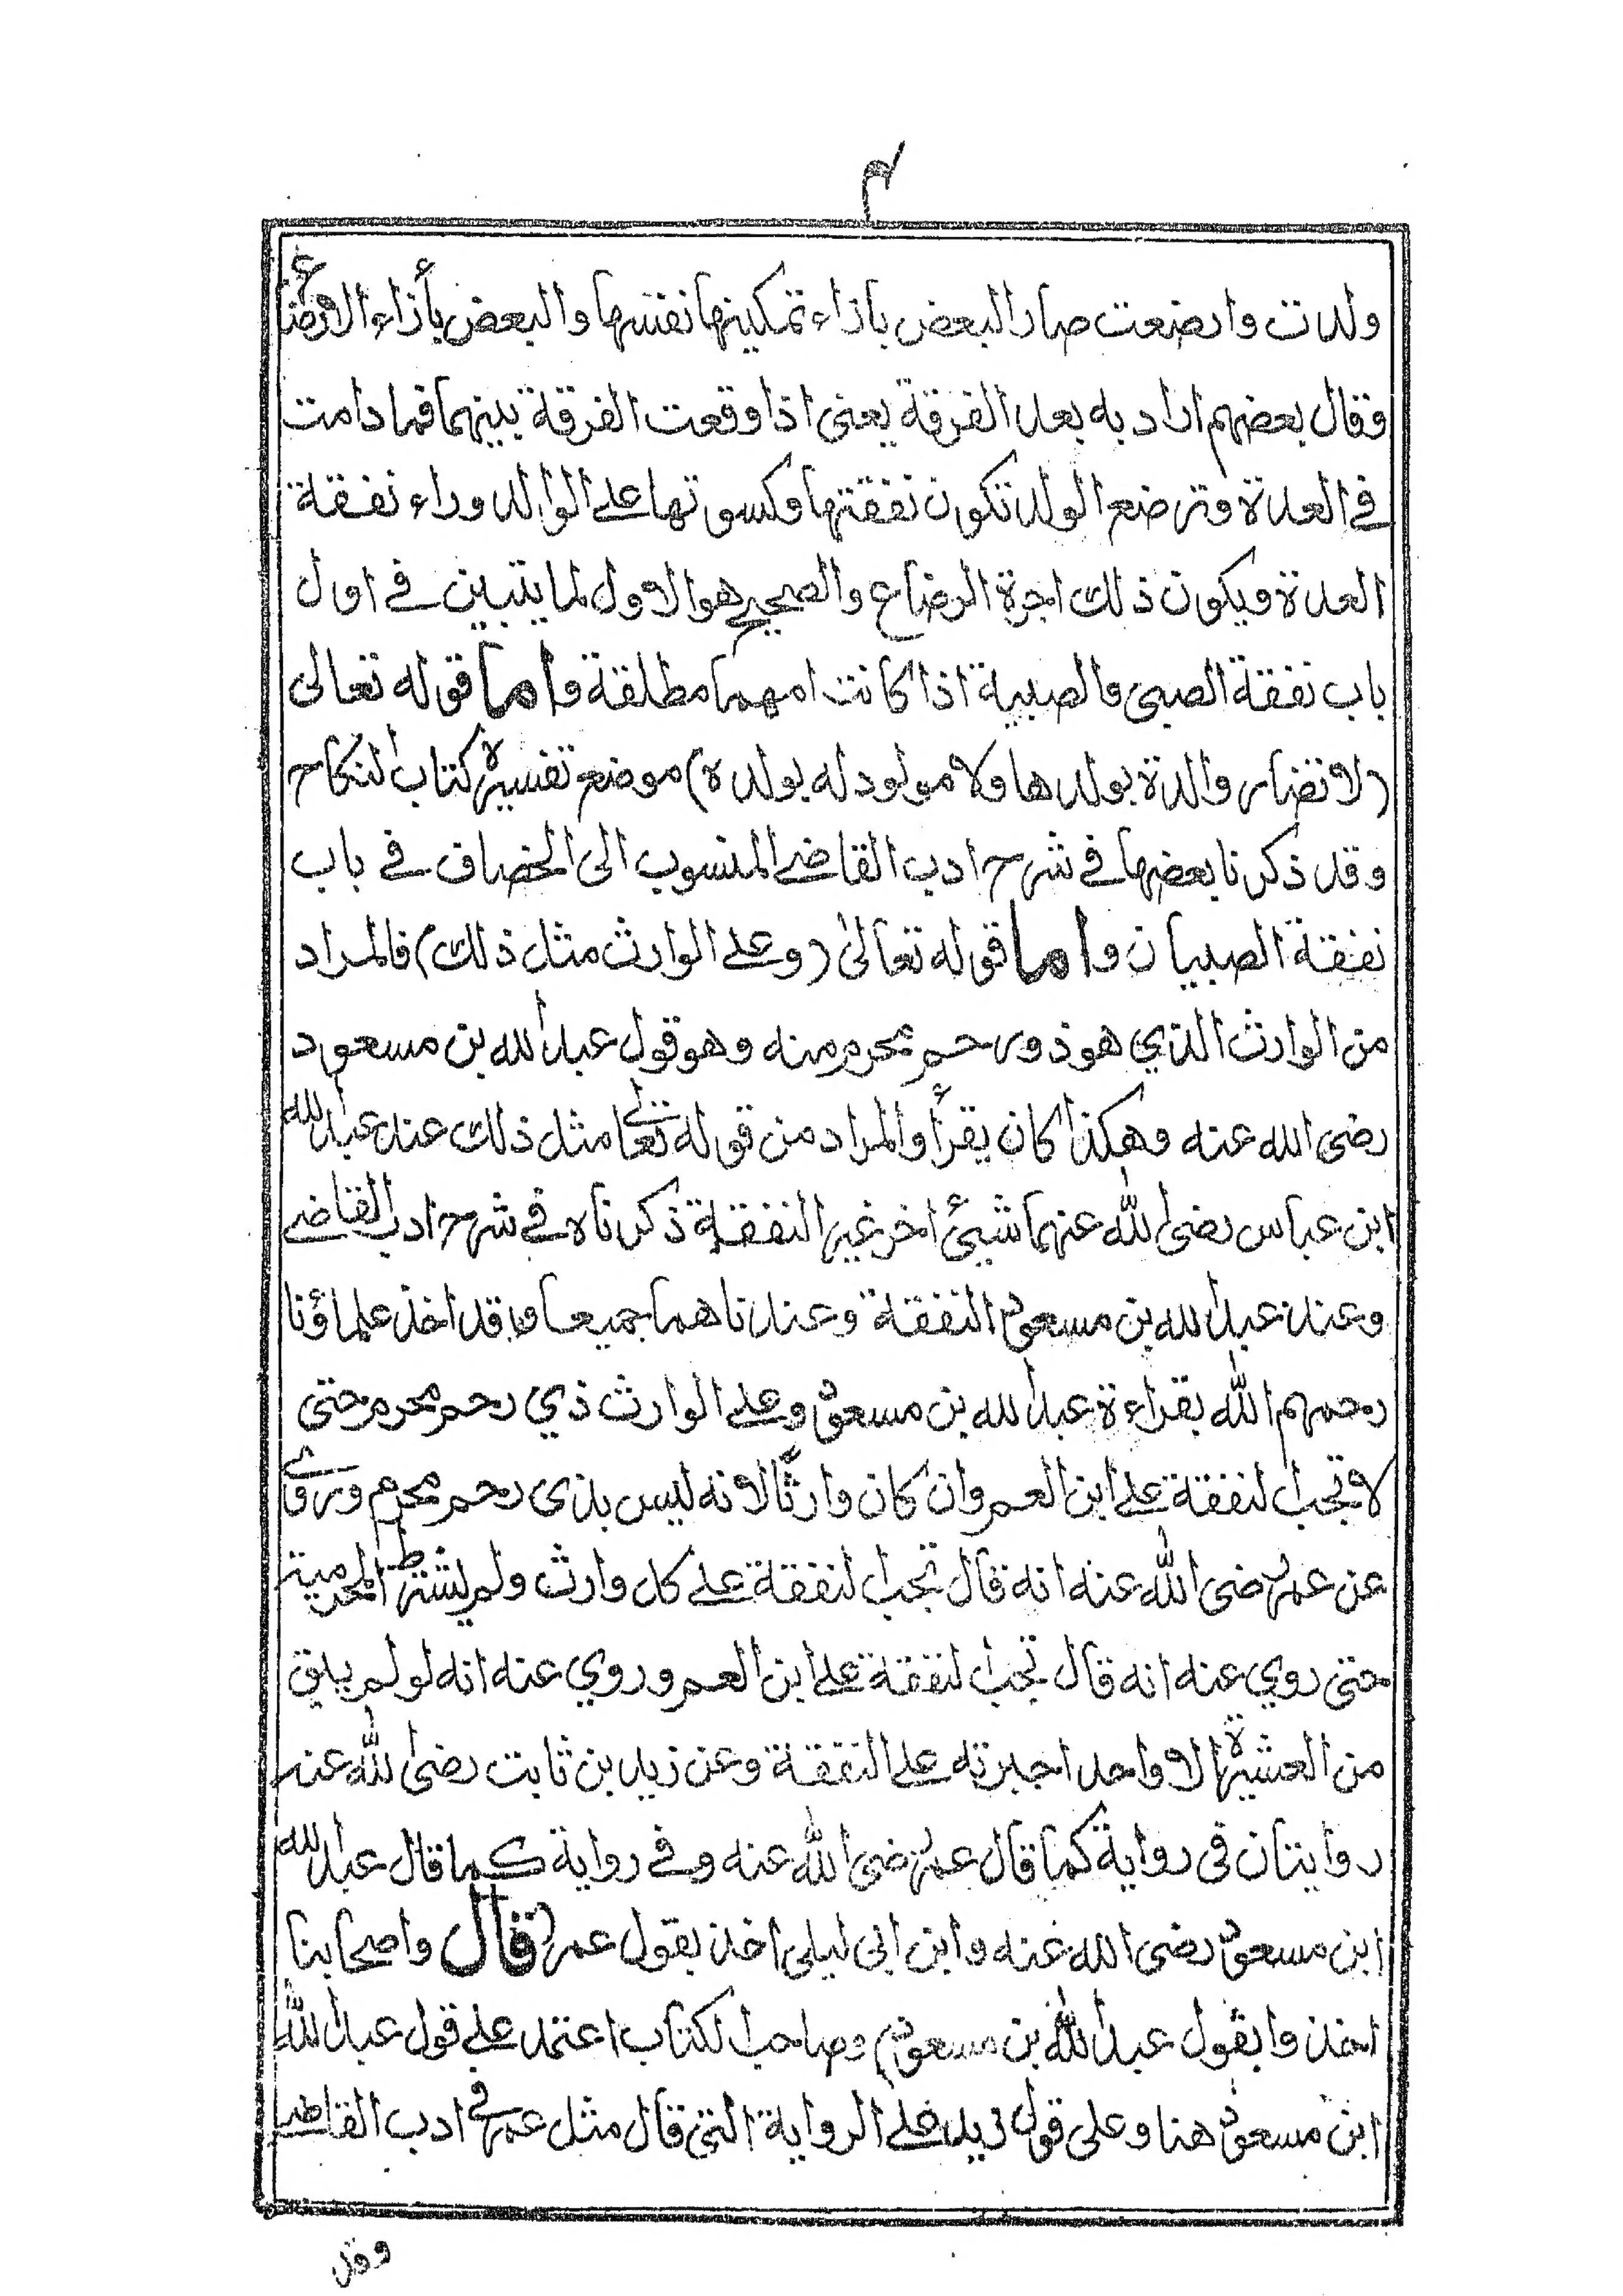 ٣
ولدت وارضعت صار البعض بازاء تمكينها نفسها والبعض بأزاء الارضاع
وقال بعضهم اراد به بعد الفرقة يعنى اذا وقعت الفرقة بينهما فما دامت
في العدة وترضع الولد تكون نفقتها وكسوتها على الوالد وراء نفقة
العدة ويكون ذلك اجرة الرضاع والصحيح هو الاول لما يتبين في اول
باب نفقة الصبى والصبية اذا كانت امهما مطلقة واما قوله تعالى
(لا تضار والدة بولدها ولا مولود له بولده) موضع تفسيره كتاب النكاح
وقد ذكرنا بعضها في شرح ادب القاضي المنسوب الى الخصاف في باب
نفقة الصبيان واما قوله تعالى (وعلى الوارث مثل ذلك) فالمراد
من الوارث الذي هو ذو رحم محرم منه وهو قول عبد الله بن مسعود
رضى الله عنه وهكذا كان يقرأ والمراد من قوله تعالى مثل ذلك عند عبد الله
ابن عباس رضى الله عنهما شيئ اخر غير النفقة ذكرناه في شرح ادب القاضي
وعند عبد الله بن مسعود النفقة وعندنا هما جميعا وقد اخذ علماؤنا
رحمهم الله بقراءة عبد الله بن مسعود وعلى الوارث ذي رحم محرم حتى
لا تجب النفقة على ابن العم وان كان وارثا لانه ليس بذى رحم محرم وروي
عن عمر رضى الله عنه انه قال تجب النفقة على كل وارث ولم يشترط المحرمية
حتى روي عنه انه قال تجب النفقة على ابن العم وروي عنه انه لو لم يبق
من العشيرة الا واحد اجبرته على النفقة وعن زيد بن ثابت رضى الله عنه
روايتان فى رواية كما قال عمر رضى الله عنه وفي رواية كما قال عبد الله
ابن مسعود رضى الله عنه وابن ابى ليلى اخذ بقول عمر (قال واصحابنا
اخذوا بقول عبد الله بن مسعود) وصاحب الكتاب اعتمد على قول عبد الله
ابن مسعود هنا وعلى قول زيد على الرواية التى قال مثل عمر في ادب القاضي
وقد